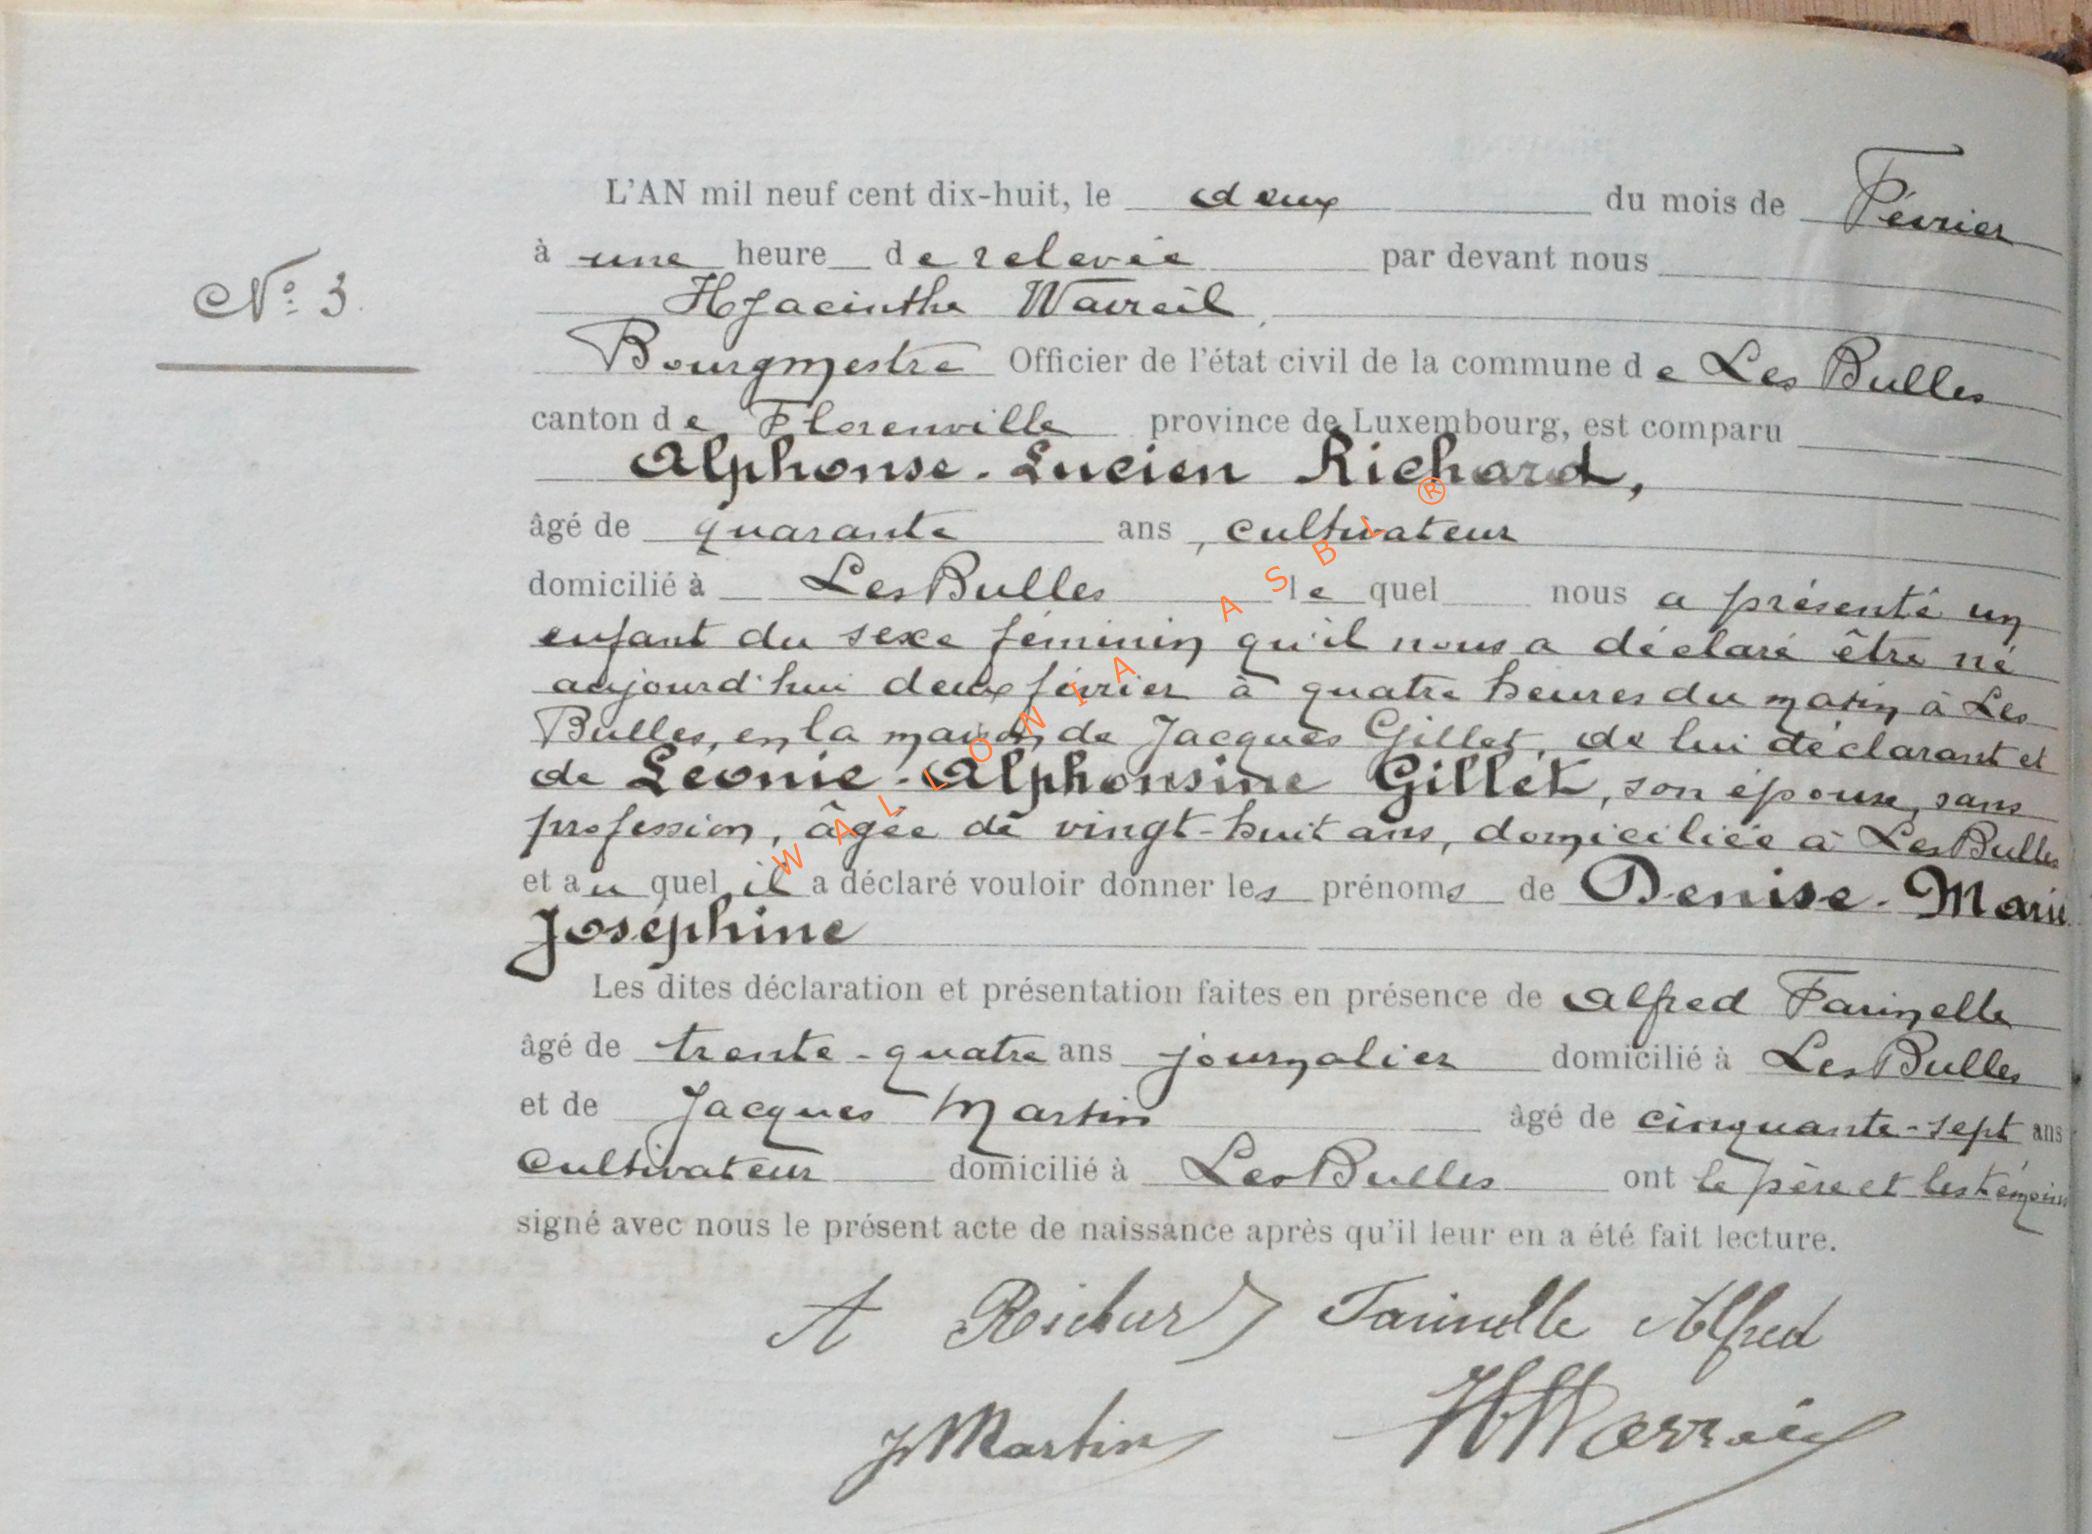 N° 3.
L'AN mil neuf cent dix-huit, le deux du mois de Février
à une heure de relevée par devant nous
Hyacinthe Wavreil,
Bourgmestre Officier de l'état civil de la commune de Les Bulles
canton de Florenville province de Luxembourg, est comparu
Alphonse-Lucien Richard,
âgé de quarante ans, cultivateur
domicilié à Les Bulles le quel nous a présenté un
enfant du sexe féminin qu'il nous a déclaré être né
aujourd'hui deux février à quatre heures du matin à Les
Bulles, en la maison de Jacques Gillet, de lui déclarant et
de Léonie-Alphonsine Gillet, son épouse, sans
profession, âgée de vingt-huit ans, domiciliée à Les Bulles
et au quel il a déclaré vouloir donner les prénoms de Denise-Marie
Joséphine
Les dites déclaration et présentation faites en présence de Alfred Farinelle
âgé de trente-quatre ans journalier domicilié à Les Bulles
et de Jacques Martin âgé de cinquante-sept ans
cultivateur domicilié à Les Bulles ont le père et les témoins
signé avec nous le présent acte de naissance après qu'il leur en a été fait lecture.
A Richard Farinelle Alfred
J Martin
WALLONIA ASBL ®